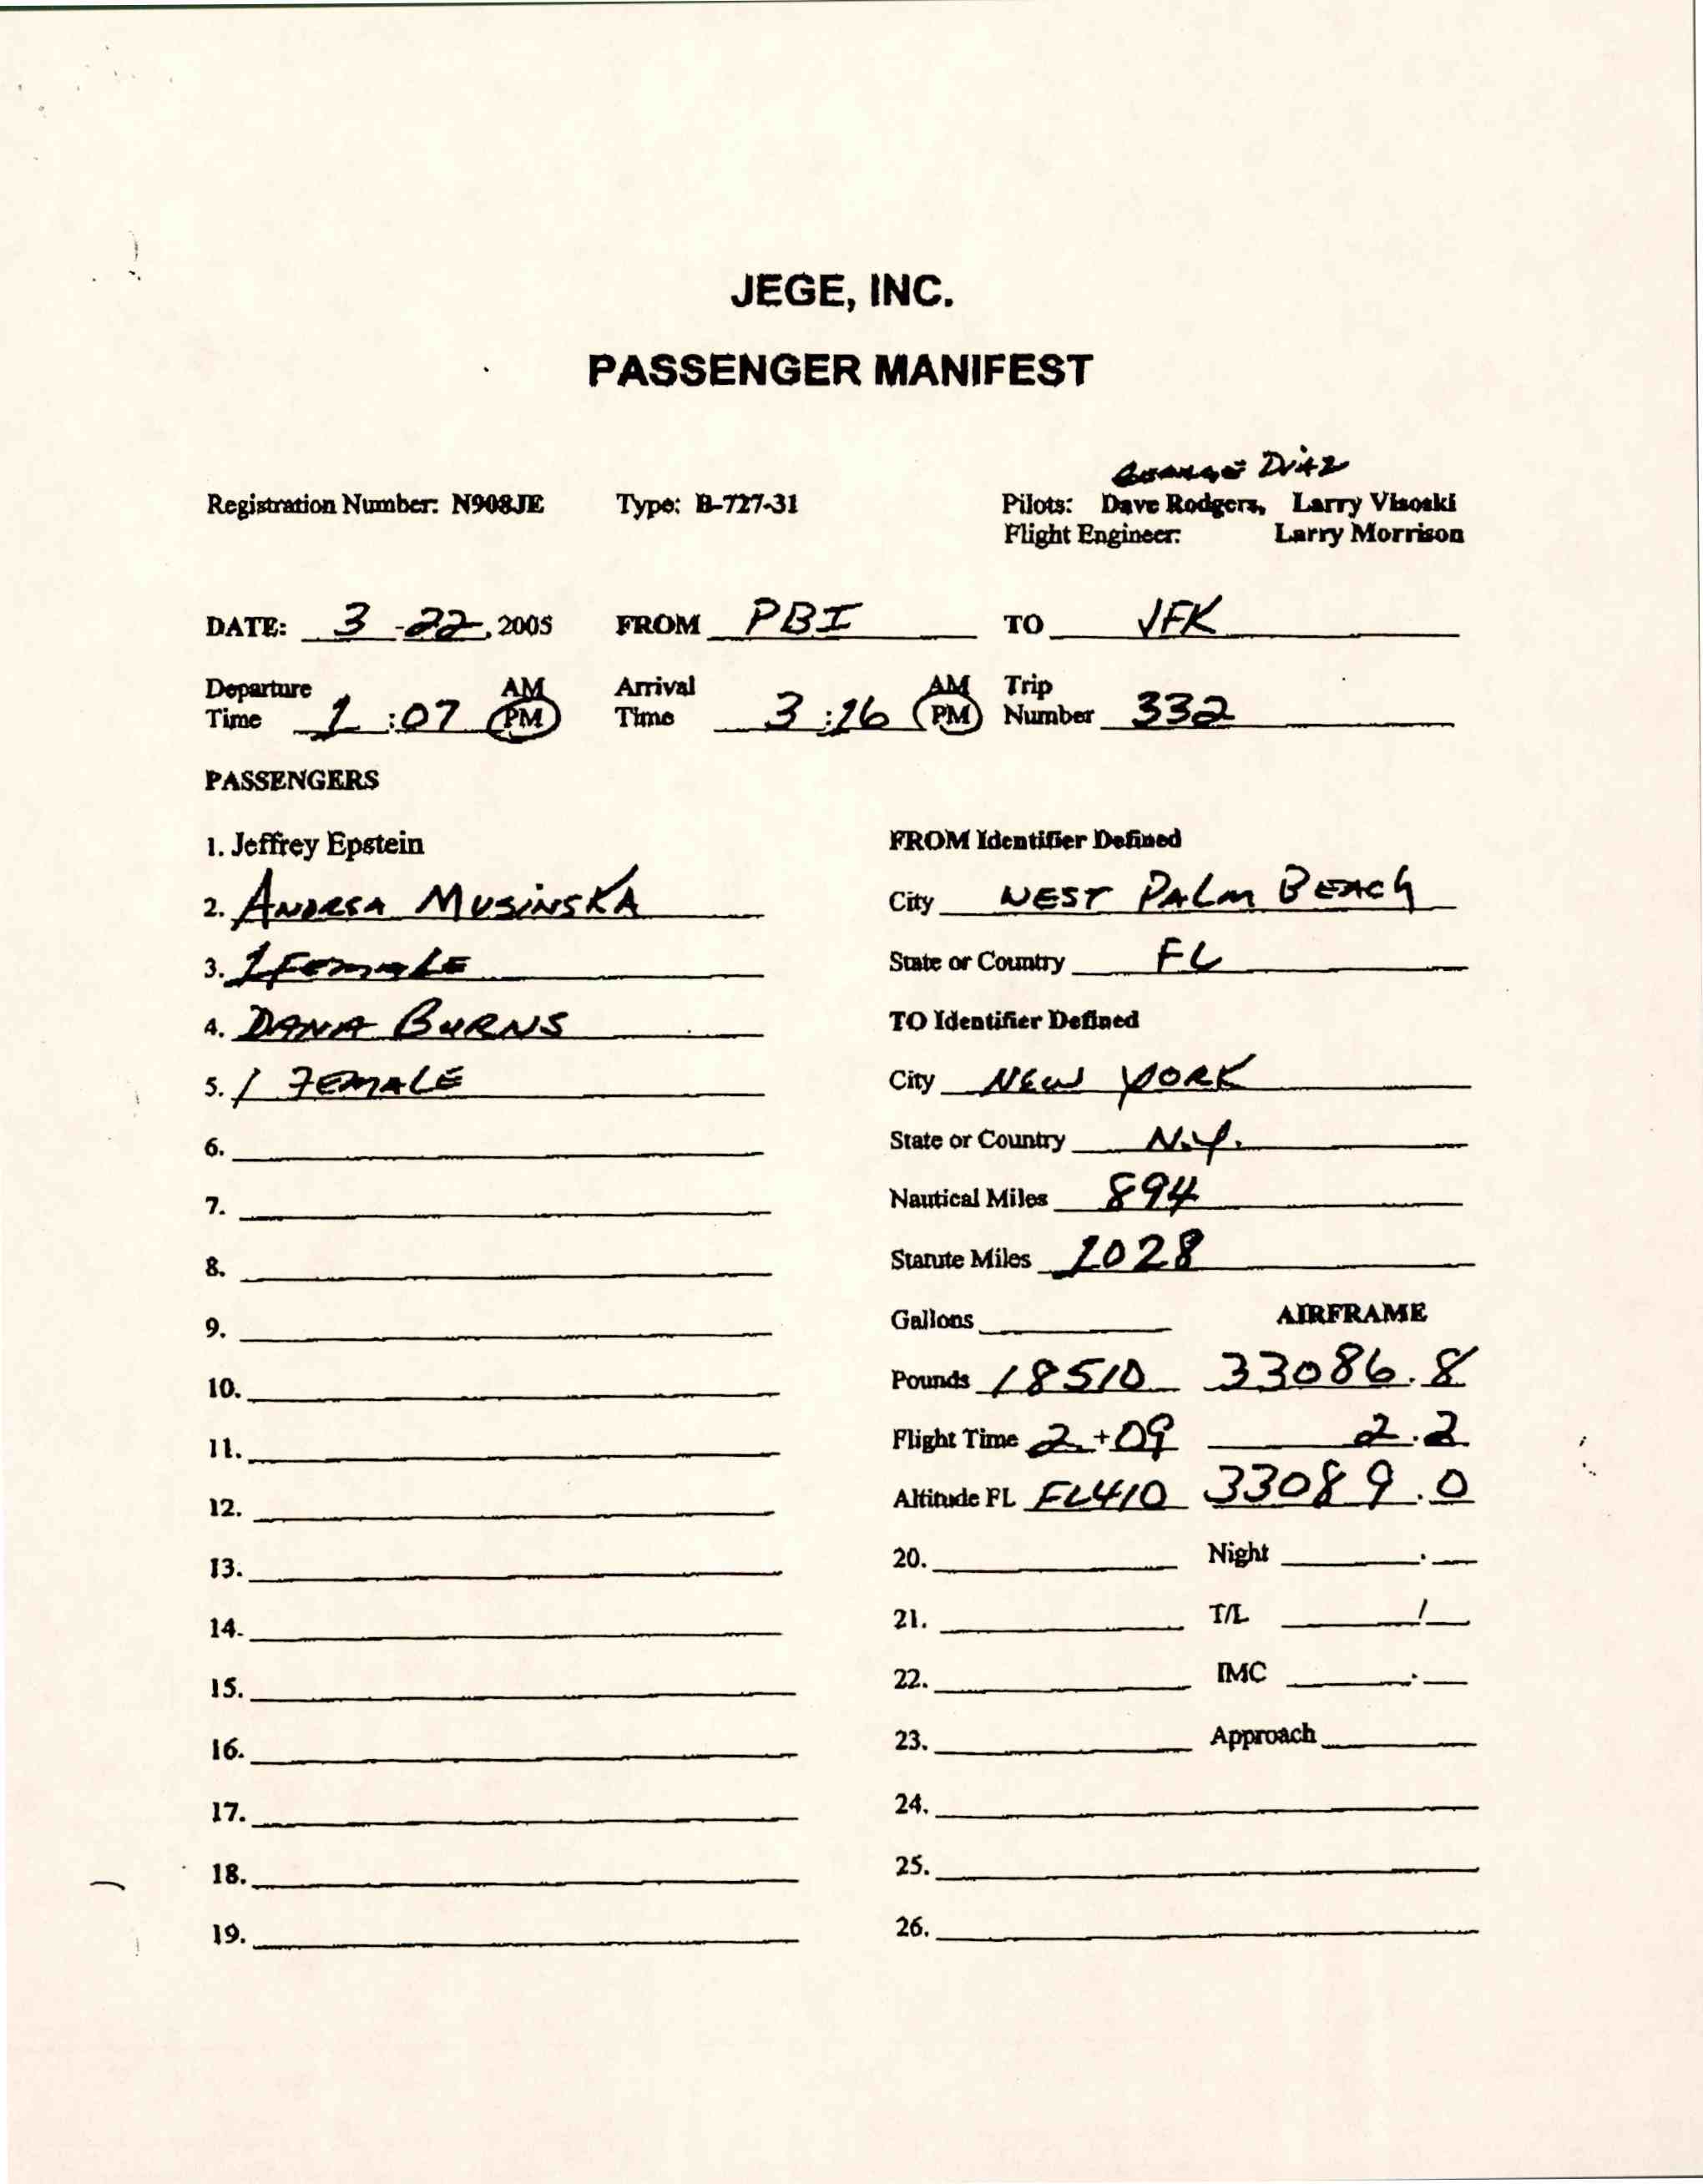 JEGE, INC.
PASSENGER MANIFEST
Diaz
Registration Number: N908JE Type: B-727-31 Pilots: Dave Rodgers, Larry Visoski
Flight Engineer: Larry Morrison
DATE: 3-22, 2005 FROM PBI TO JFK
Departure Time 1:07 AM PM Arrival Time 3:16 AM PM Trip Number 332
PASSENGERS
1. Jeffrey Epstein
2. ANDREA MUSINSKA
3. 1 FEMALE
4. DANA BURNS
5. 1 FEMALE
6.
7.
8.
9.
10.
11.
12.
13.
14.
15.
16.
17.
18.
19.
FROM Identifier Defined
City WEST PALM BEACH
State or Country FL
TO Identifier Defined
City NEW YORK
State or Country N.Y.
Nautical Miles 894
Statute Miles 1028
Gallons AIRFRAME
Pounds 18510 33086.8
Flight Time 2+09 2.2
Altitude FL FL410 33089.0
20. Night .
21. T/L /
22. IMC .
23. Approach
24.
25.
26.